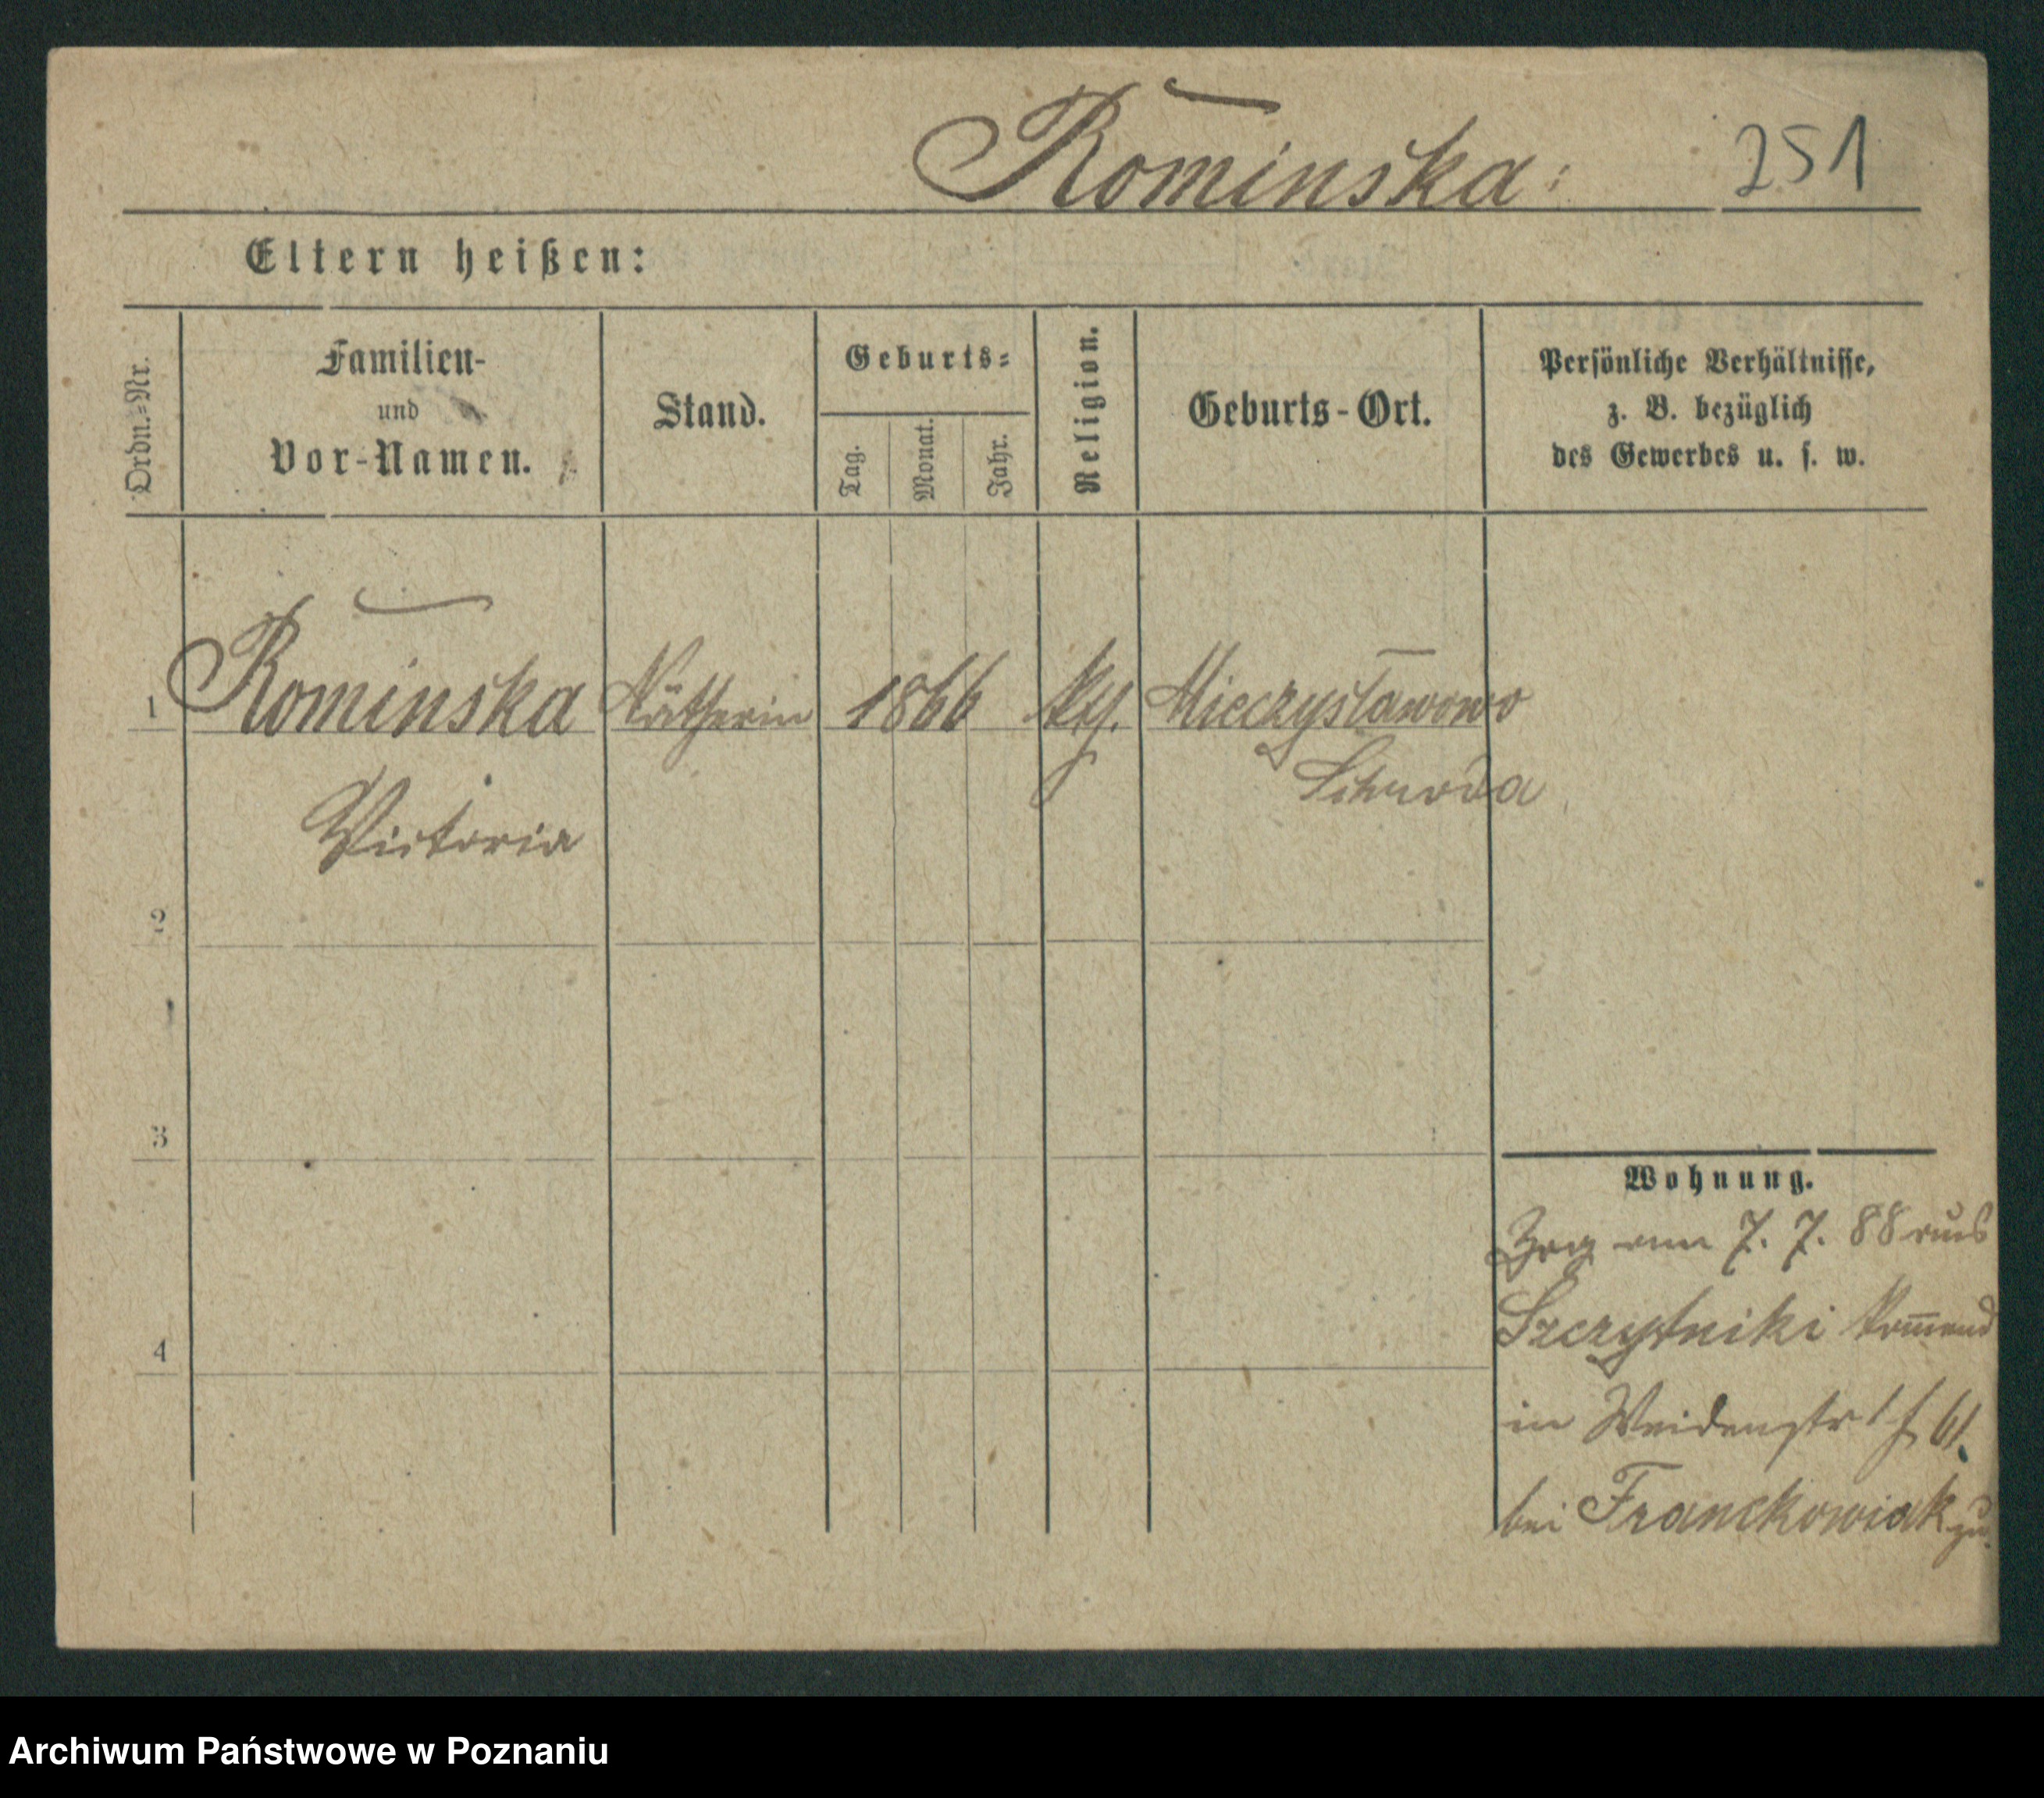 Rominska 251
Eltern heißen:
Ordn.=Nr.
Familien-
und
Vor-Namen.
Stand.
Geburts=
Tag.
Monat.
Jahr.
Religion.
Geburts-Ort.
Persönliche Verhältnisse,
z. B. bezüglich
des Gewerbes u. s. w.
1 Rominska Nätherin 1866 Mieczysławowo
Schroda
Victoria
2
3
4
Wohnung.
Zog am 7. 7. 88 aus
Szczytniki kommend
in Weidenstr
bei Franckowiak zu.
Archiwum Państwowe w Poznaniu